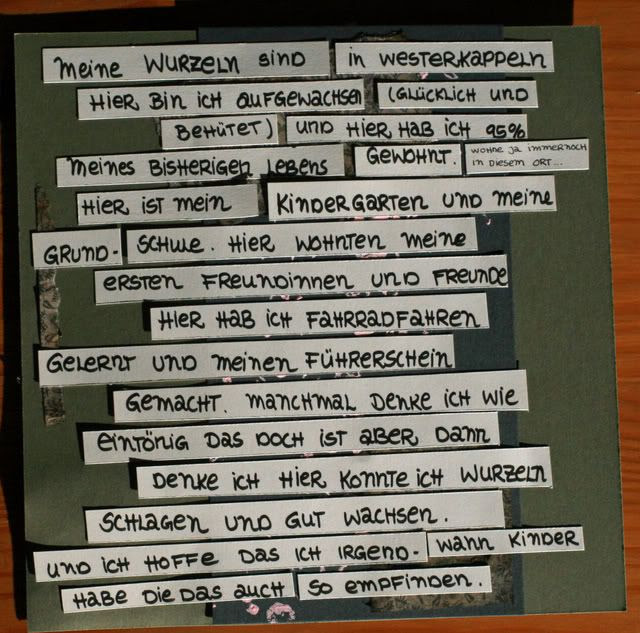 meine WURZELN SIND in WESTERKAPPELN
HIER BIN ICH AUFGEWACHSEN (GLÜCKLICH UND
BEHÜTET) UND HIER HAB ICH 95%
MEINES BISHERIGEN LEBENS GEWOHNT. WOHNE JA IMMERNOCH
IN DIESEM ORT...
HIER IST MEIN KINDERGARTEN UND MEINE
GRUND- SCHULE. HIER WOHNTEN MEINE
ERSTEN FREUNDINNEN UND FREUNDE
HIER HAB ICH FAHRRADFAHREN
GELERNT UND MEINEN FÜHRERSCHEIN
GEMACHT. MANCHMAL DENKE ICH WIE
EINTÖNIG DAS DOCH IST ABER DANN
DENKE ICH HIER KONNTE ICH WURZELN
SCHLAGEN UND GUT WACHSEN.
UND ICH HOFFE DAS ICH IRGEND- WANN KINDER
HABE DIE DAS AUCH SO EMPFINDEN.